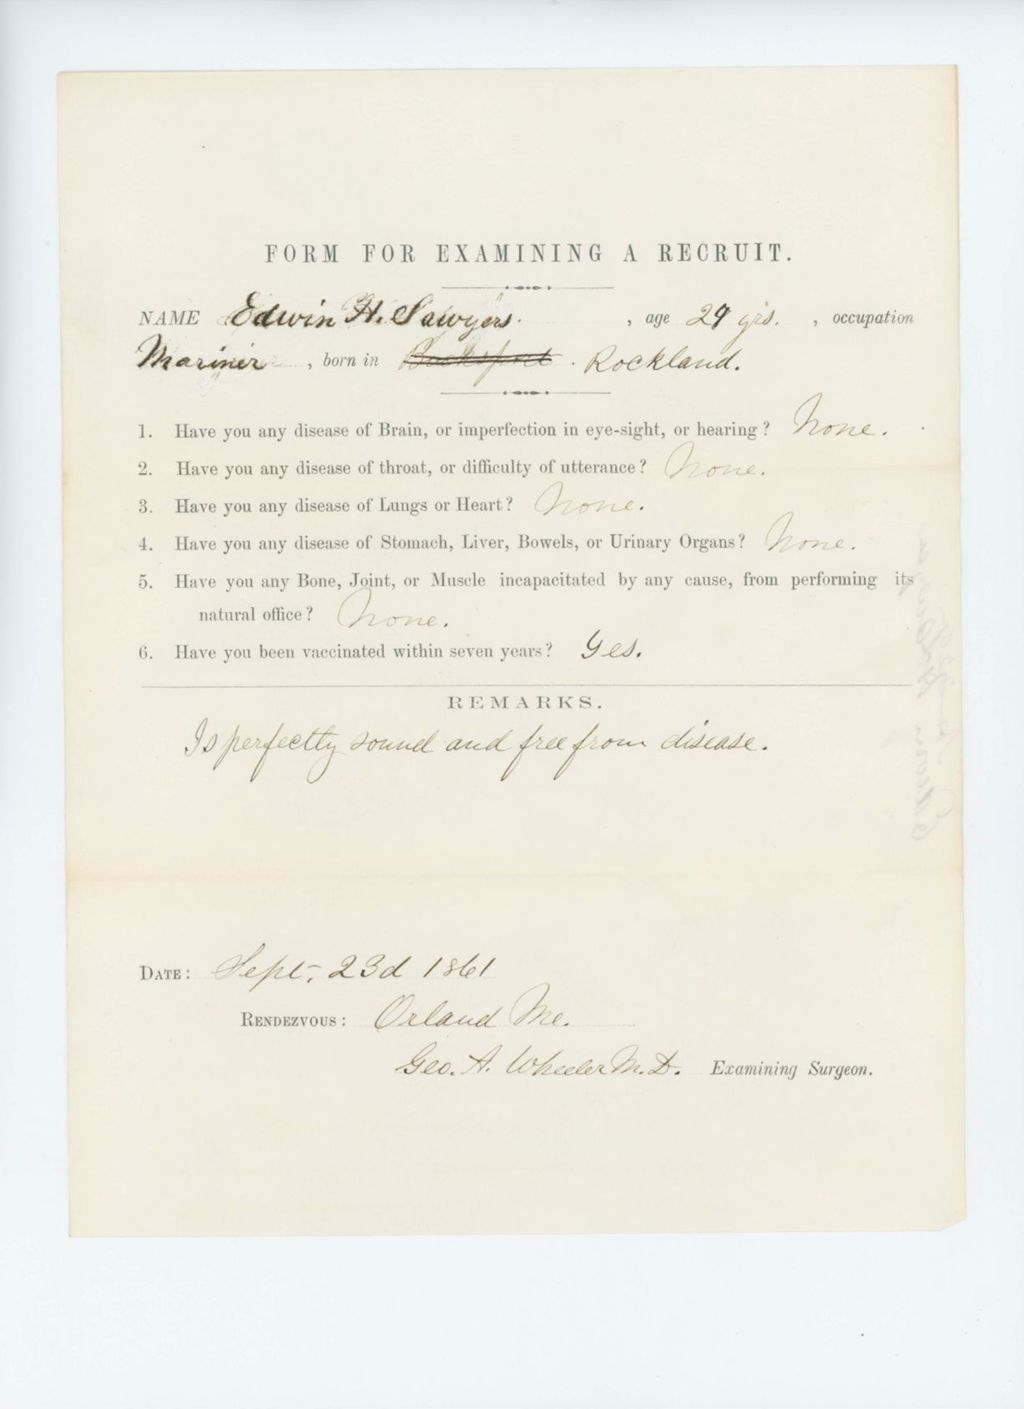 FORM FOR EXAMINING A RECRUIT.
NAME Edwin H. Sawyers. , age 29 yrs. , occupation
Mariner , born in Bucksport . Rockland.
1. Have you any disease of Brain, or imperfection in eye-sight, or hearing? None.
2. Have you any disease of throat, or difficulty of utterance? None.
3. Have you any disease of Lungs or Heart? None.
4. Have you any disease of Stomach, Liver, Bowels, or Urinary Organs? None.
5. Have you any Bone, Joint, or Muscle incapacitated by any cause, from performing its
natural office? None.
6. Have you been vaccinated within seven years? Yes.
REMARKS.
Is perfectly sound and free from disease.
DATE: Sept. 23d 1861
RENDEZVOUS: Orland Me.
Geo. A. Wheeler M.D. Examining Surgeon.